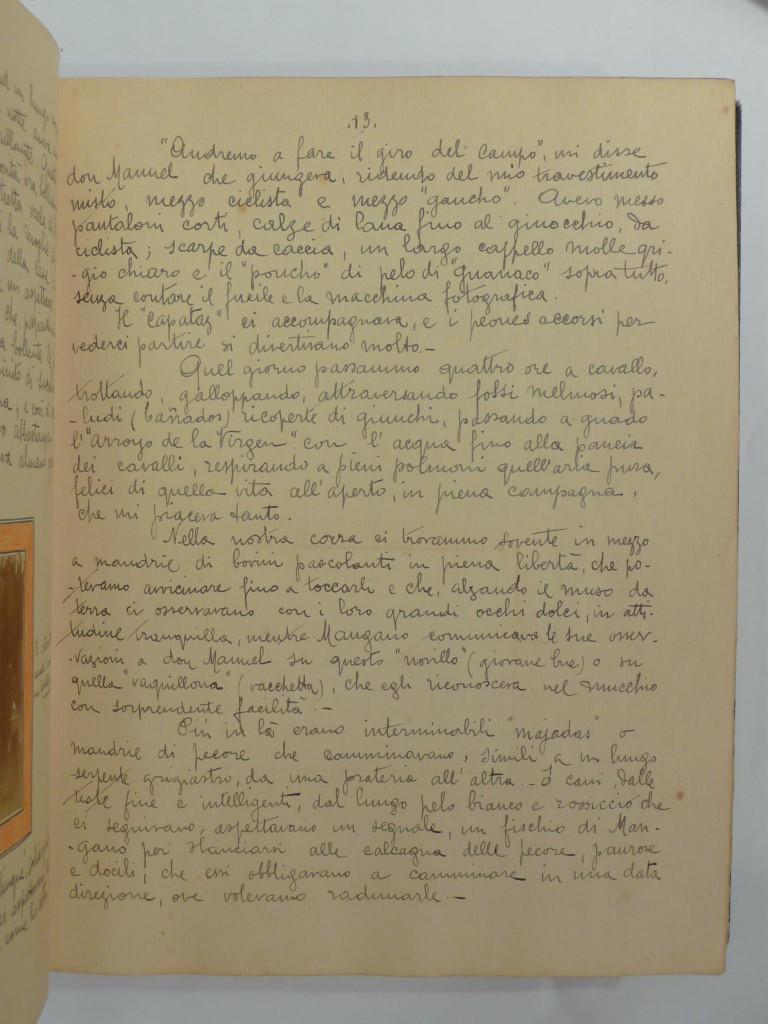 .13.
"Andremo a fare il giro del campo", mi disse
don Manuel che giungeva, ridendo del mio travestimento
misto, mezzo ciclista e mezzo "gaucho". Avevo messo
pantaloni corti, calze di lana fino al ginocchio, da
ciclista; scarpe da caccia, un largo cappello molle gri-
-gio chiaro e il "poncho" di pelo di "guanaco" sopratutto,
senza contare il fucile e la macchina fotografica.
Il "capataz" ci accompagnava, e i peones accorsi per
vederci partire si divertivano molto.-
Quel giorno passammo quattro ore a cavallo,
trottando, galloppando, attraversando fossi melmosi, pa-
-ludi (bañados) ricoperte di giunchi, passando a guado
l'"Arroyo de la Virgen" con l'acqua fino alla pancia
dei cavalli, respirando a pieni polmoni quell'aria pura,
felici di quella vita all'aperto, in piena campagna,
che mi piaceva tanto.
Nella nostra corsa ci trovammo sovente in mezzo
a mandrie di bovini pascolanti in piena libertà, che po-
-tevamo avvicinare fino a toccarli e che, alzando il muso da
terra ci osservavano con i loro grandi occhi dolci, in atti-
-tudine tranquilla, mentre Manzano comunicava le sue osser-
-vazioni a don Manuel su questo "novillo" (giovane bue) o su
quella "vaquillona" (vacchetta), che egli riconosceva nel mucchio
con sorprendente facilità.-
Più in là erano interminabili "majadas" o
mandrie di pecore che camminavano, simili a un lungo
serpente grigiastro, da una prateria all'altra.- I cani, dalle
teste fine e intelligenti, dal lungo pelo bianco e rossiccio che
ci seguivano, aspettavano un segnale, un fischio di Man-
-zano per slanciarsi alle calcagna delle pecore, paurose
e docili, che essi obbligavano a camminare in una data
direzione, ove volevano radunarle.-